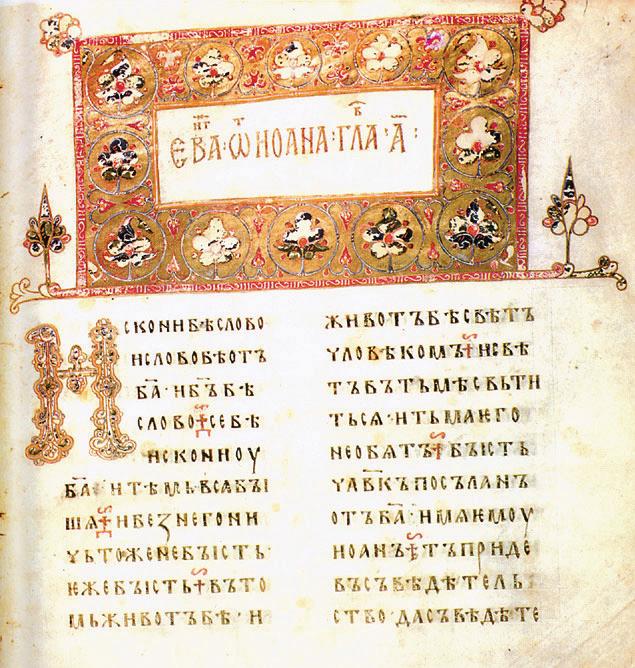 ЕВА·Ꙍ҃ИОАНА·ГЛА·А҃:
ИСКОНИБѢСЛОВО
ИСЛОВОБѢОТЪ
БА҃·ИБЪ҃БѢ
СЛОВО·СЕБѢ
ИСКОНИОУ
БА҃·И·ТѢМЬВСЯБЪІ
ШѦ·ИБЕЗНЕГОНИ
ЧЬТОЖЕНЕБЪІСТЬ·
ѤЖЕБЪІСТЬ·ВЪТО
МЬЖИВОТЪБѢ·И
ЖИВОТЪБѢСВѢТЪ
ЧЛОВѢКОМЪ·ИСВѢ
ТЪВЪТЬМѢСВЬТИ
ТЬСѦ·ИТЬМАѤГО
НЕОБѦТЪ·БЪІСТЬ
ЧЛВ҃КЪПОСЪЛАНЪ
ОТЪБА҃·ИМѦѤМОУ
ИОАНЪ·ТЪПРИДЕ
ВЪСЪВѢДѢТЕЛЬ
СТВО·ДАСЪВѢДѢТЕ